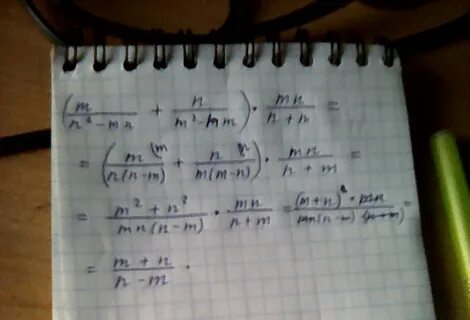 (m/(n² - mn) + n/(m² - nm)) · mn/(n + n) =
= (m/(n(n-m)) + n/(m(m-n))) · mn/(n + m) =
= (m² + n²)/(mn(n-m)) · mn/(n+m) = ((m+n)² · mn)/(mn(n-m)(n+m)) =
= (m + n)/(n - m) .